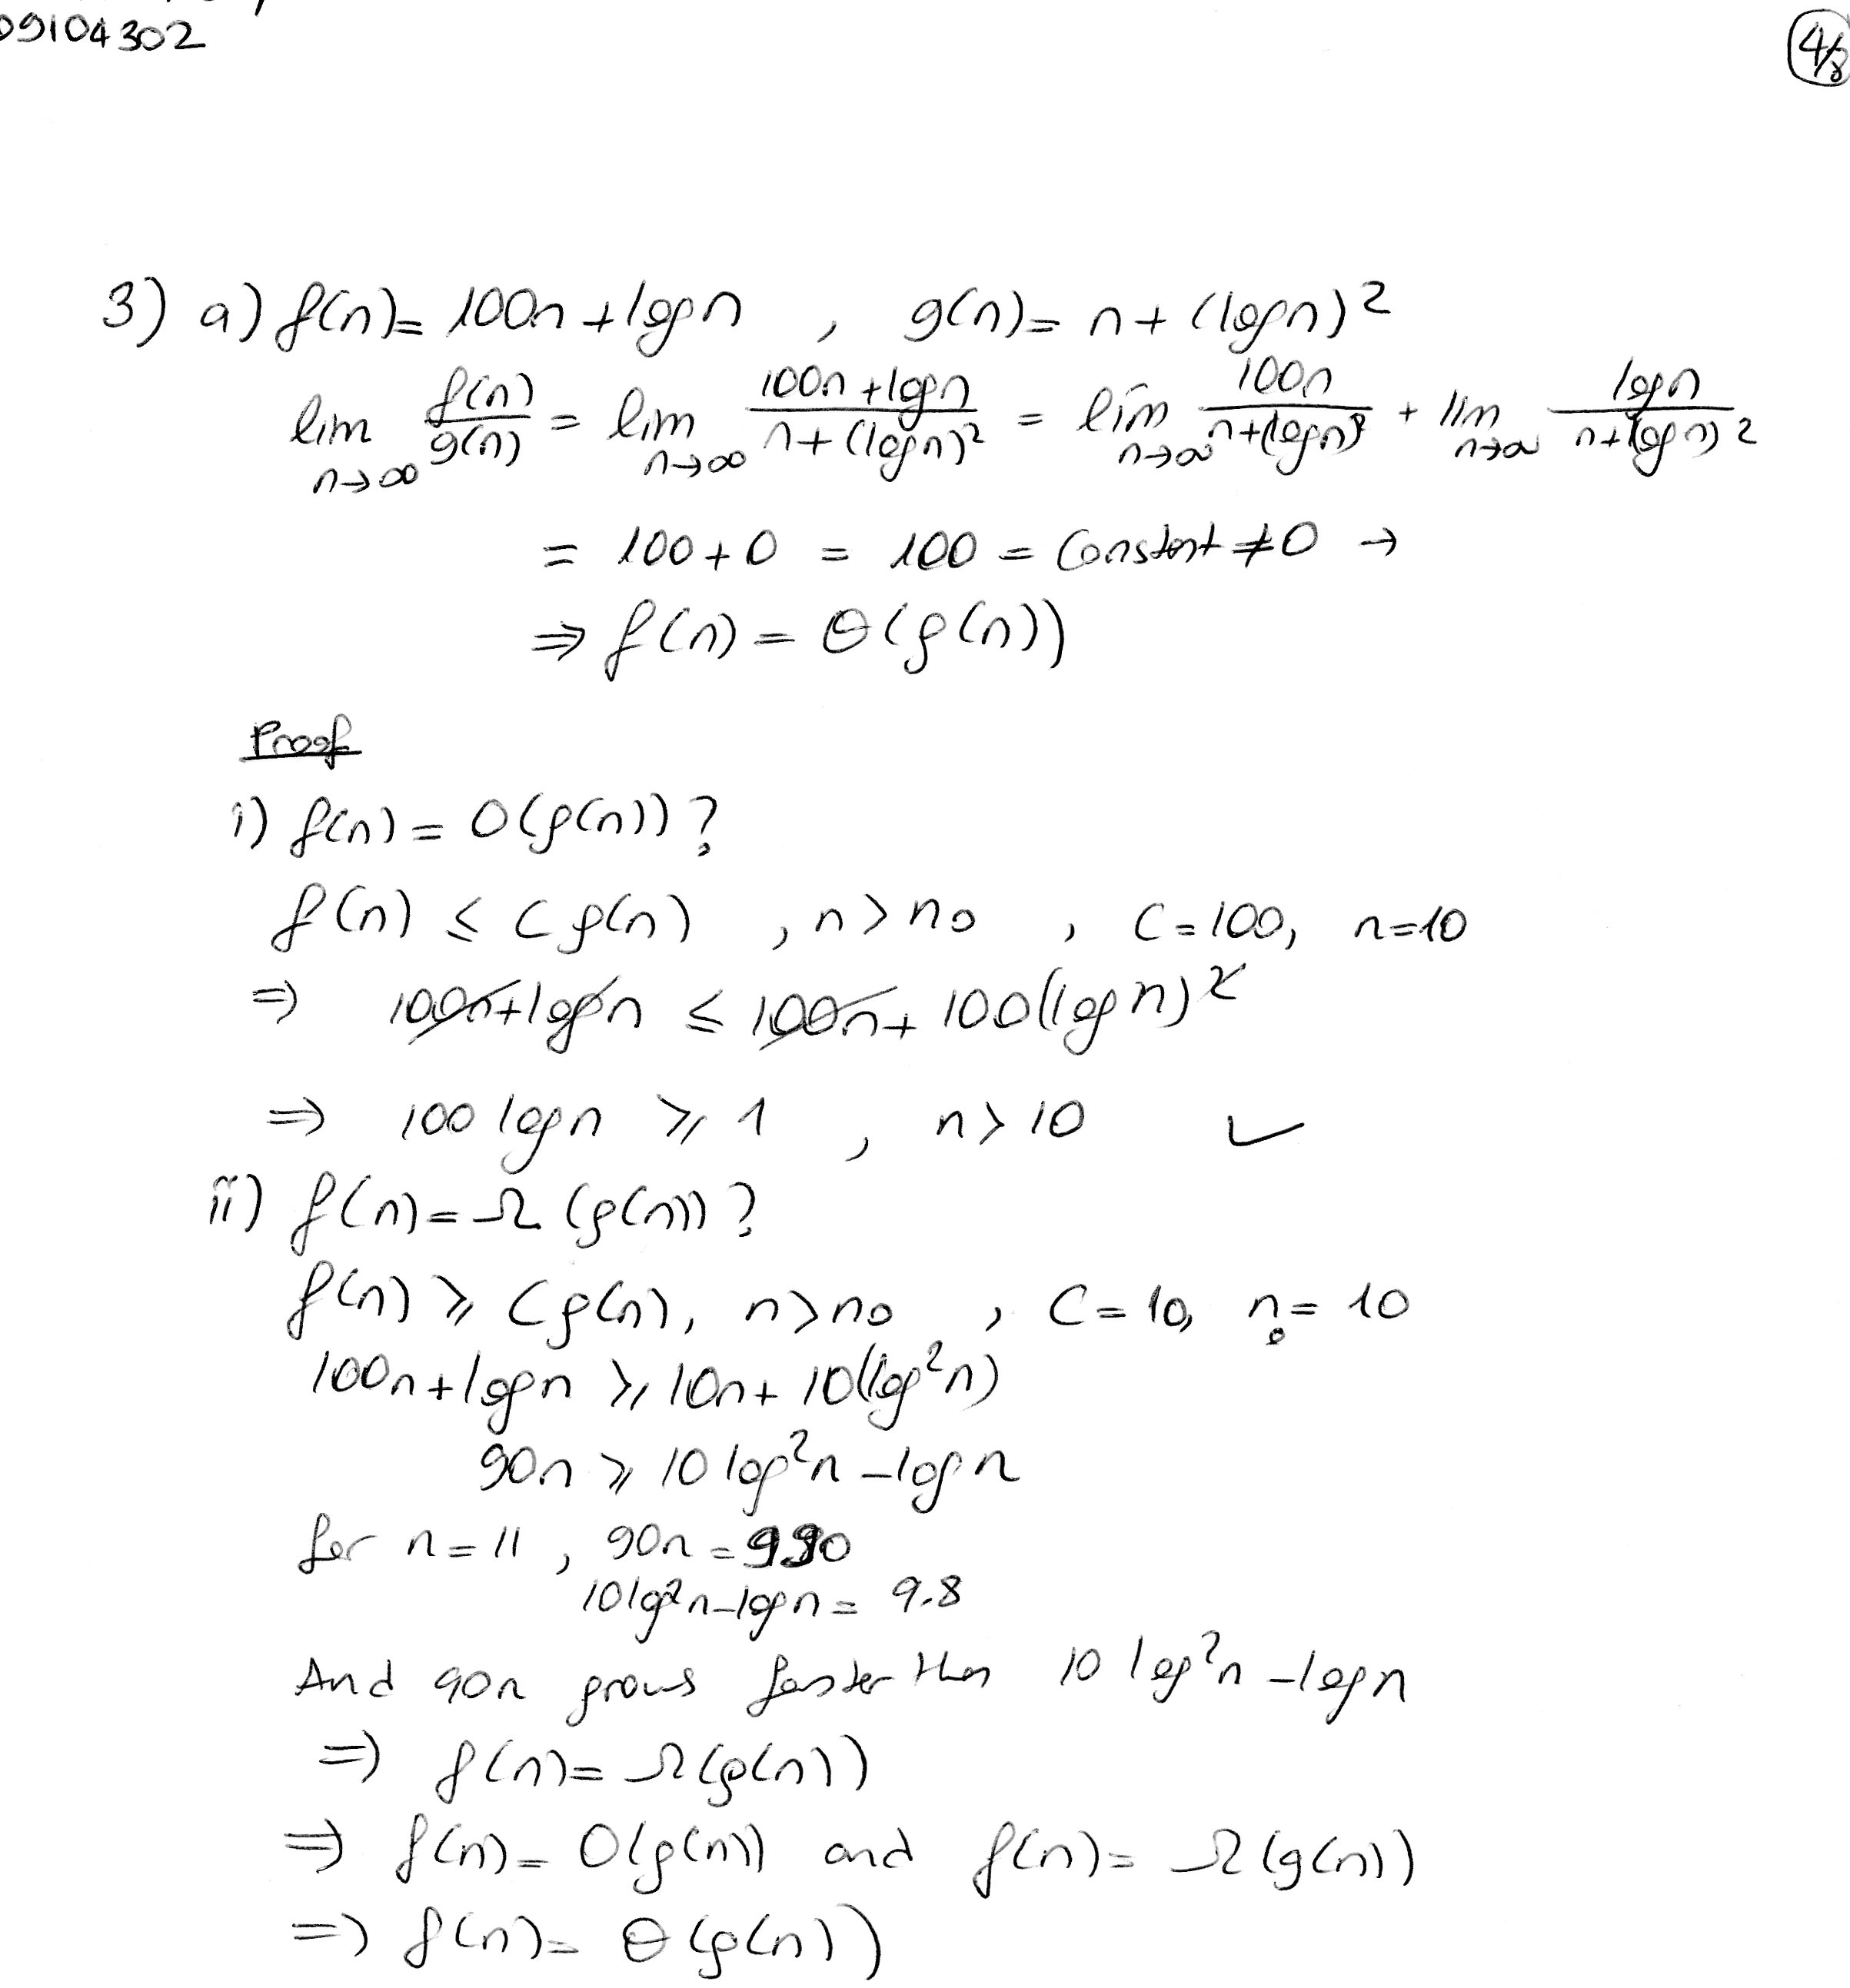 09104302
4/8
3) a) f(n) = 100n + logn , g(n) = n + (logn)²
lim n→∞ f(n)/g(n) = lim n→∞ (100n + logn)/(n + (logn)²) = lim n→∞ 100n/(n+(logn)²) + lim n→∞ logn/(n+(logn)²)
= 100 + 0 = 100 = Constant ≠ 0 →
⇒ f(n) = Θ(g(n))
Proof
i) f(n) = O(g(n)) ?
f(n) ≤ C g(n) , n > n₀ , C = 100, n = 10
⇒ 100n + logn ≤ 100n + 100(logn)²
⇒ 100 logn ≥ 1 , n > 10 ✓
ii) f(n) = Ω(g(n)) ?
f(n) ≥ C g(n), n > n₀ , C = 10, n₀ = 10
100n + logn ≥ 10n + 10(log²n)
90n ≥ 10 log²n - logn
for n = 11 , 90n = 990
10 log²n - logn = 9.8
And 90n grows faster than 10 log²n - logn
⇒ f(n) = Ω(g(n))
⇒ f(n) = O(g(n)) and f(n) = Ω(g(n))
⇒ f(n) = Θ(g(n))